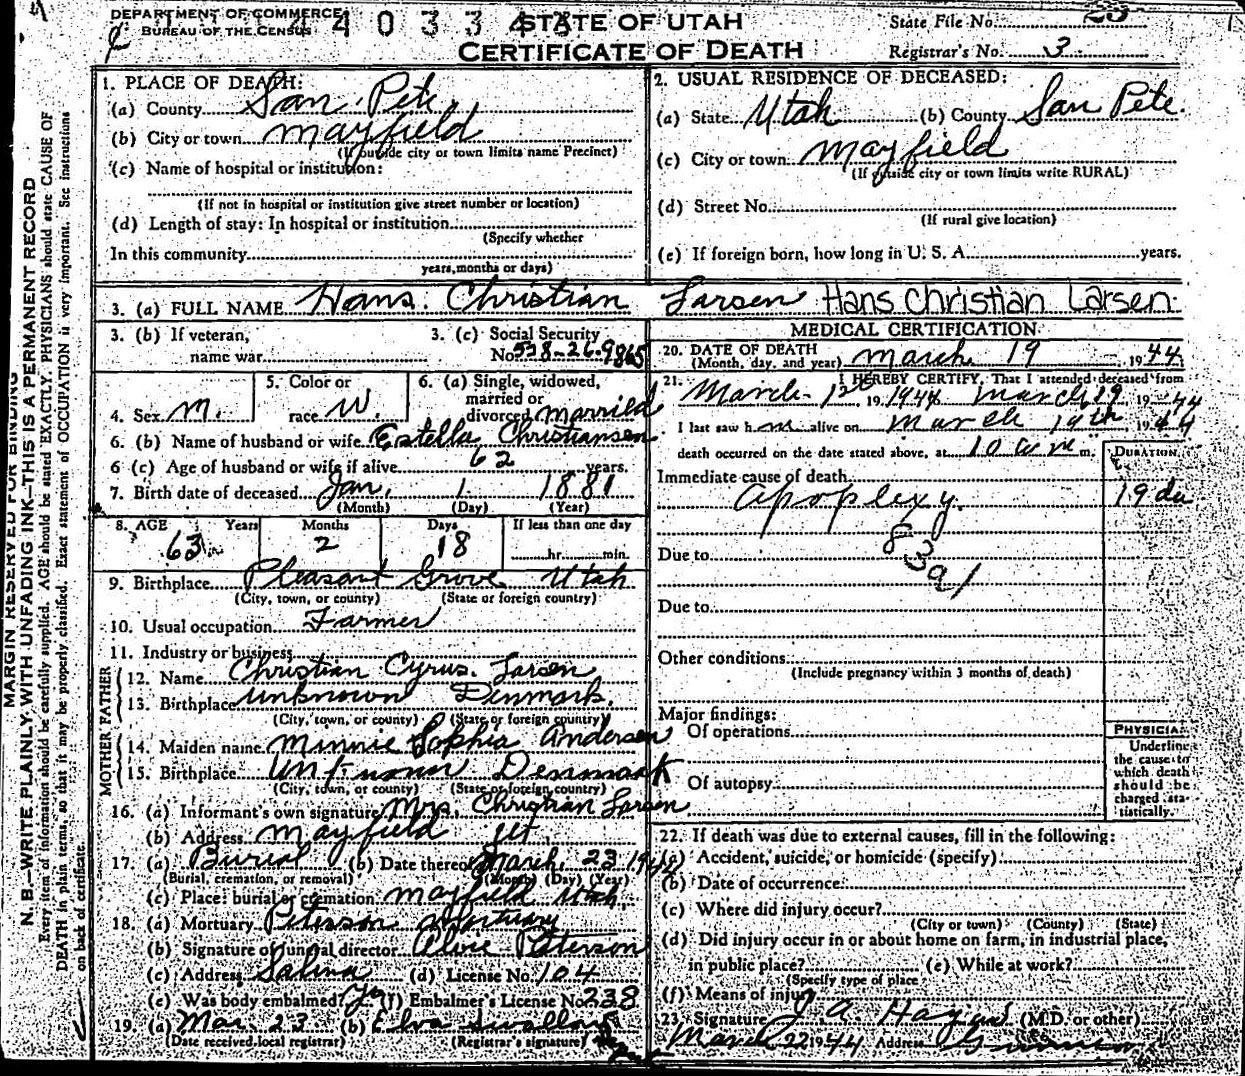 DEPARTMENT OF COMMERCE
BUREAU OF THE CENSUS
STATE OF UTAH
CERTIFICATE OF DEATH
State File No. 23
Registrar's No. 3
MARGIN RESERVED FOR BINDING
N. B.—WRITE PLAINLY, WITH UNFADING INK—THIS IS A PERMANENT RECORD
Every item of information should be carefully supplied. AGE should be stated EXACTLY. PHYSICIANS should state CAUSE OF
DEATH in plain terms, so that it may be properly classified. Exact statement of OCCUPATION is very important. See instructions
on back of certificate.
1. PLACE OF DEATH:
(a) County San Pete
(b) City or town Mayfield
(If outside city or town limits name Precinct)
(c) Name of hospital or institution:
(If not in hospital or institution give street number or location)
(d) Length of stay: In hospital or institution
(Specify whether
In this community
years, months or days)
2. USUAL RESIDENCE OF DECEASED:
(a) State Utah (b) County San Pete.
(c) City or town Mayfield
(If outside city or town limits write RURAL)
(d) Street No.
(If rural give location)
(e) If foreign born, how long in U. S. A. years.
3. (a) FULL NAME Hans. Christian Larsen Hans Christian Larsen
3. (b) If veteran,
name war
3. (c) Social Security
No. 538-26-9865
4. Sex M.
5. Color or
race W.
6. (a) Single, widowed,
married or
divorced Marrild
6. (b) Name of husband or wife Estella Christiansen
6 (c) Age of husband or wife if alive 62 years.
7. Birth date of deceased Jan. 1 1881
(Month) (Day) (Year)
8. AGE Years Months Days If less than one day
63 2 18 hr. min.
9. Birthplace Pleasant Grove Utah
(City, town, or county) (State or foreign country)
10. Usual occupation Farmer
11. Industry or business
MOTHER FATHER
12. Name Christian Cyrus. Larsen
13. Birthplace Unknown Denmark.
(City, town, or county) (State or foreign country)
14. Maiden name Minnie Sophia Andersen
15. Birthplace Unknown Denmark
(City, town, or county) (State or foreign country)
16. (a) Informant's own signature Mrs. Christian Larsen
(b) Address Mayfield
17. (a) Burial (b) Date thereof March 23 1944
(Burial, cremation, or removal) (Month) (Day) (Year)
(c) Place: burial or cremation Mayfield Utah.
18. (a) Mortuary Peterson Mortuary
(b) Signature of funeral director Peterson
(c) Address Salina (d) License No. 104
(e) Was body embalmed? (f) Embalmer's License No. 238
19. (a) Mar. 23 (b) Elva
(Date received local registrar) (Registrar's signature)
MEDICAL CERTIFICATION
20. DATE OF DEATH
(Month, day, and year) March 19 1944
21. I HEREBY CERTIFY, That I attended deceased from
March 1st 1944 March 19 1944
I last saw h m alive on March 19th 1944
death occurred on the date stated above, at 10 a m m.
DURATION
Immediate cause of death
Apoplexy. 19 da
Due to
83a1
Due to
Other conditions
(Include pregnancy within 3 months of death)
Major findings:
Of operations
Of autopsy
PHYSICIAN
Underline
the cause to
which death
should be
charged sta-
tistically.
22. If death was due to external causes, fill in the following:
(a) Accident, suicide, or homicide (specify)
(b) Date of occurrence
(c) Where did injury occur?
(City or town) (County) (State)
(d) Did injury occur in or about home on farm, in industrial place,
in public place? (e) While at work?
(Specify type of place
(f) Means of injury
23. Signature J A Hagan (M.D. or other)
March 22 1944 Address